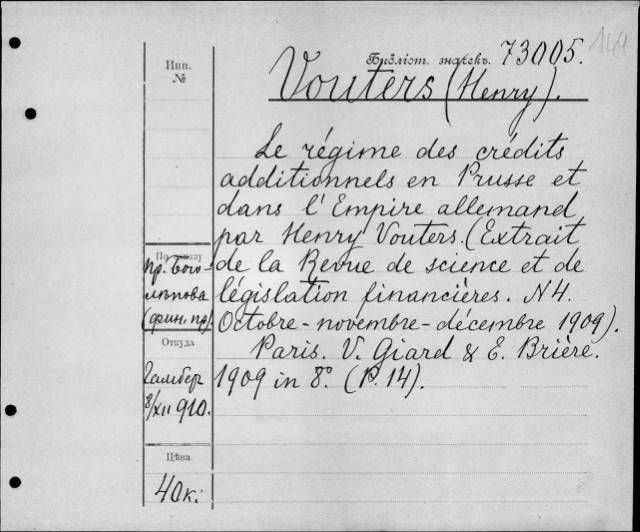 Библіот. значекъ. 73005. 149
Инв.
№
Vouters (Henry).
Le régime des crédits
additionnels en Prusse et
dans l'Empire allemand,
par Henry Vouters. (Extrait
de la Revue de science et de
législation financières. N4.
Octobre-novembre-décembre 1909).
Paris. V. Giard & E. Brière.
1909 in 8°. (P. 14).
По заказу
пр. Бого-
лѣпова
(фин. пр.)
Откуда
Гамбер
8/XII 910.
Цѣна
40к.